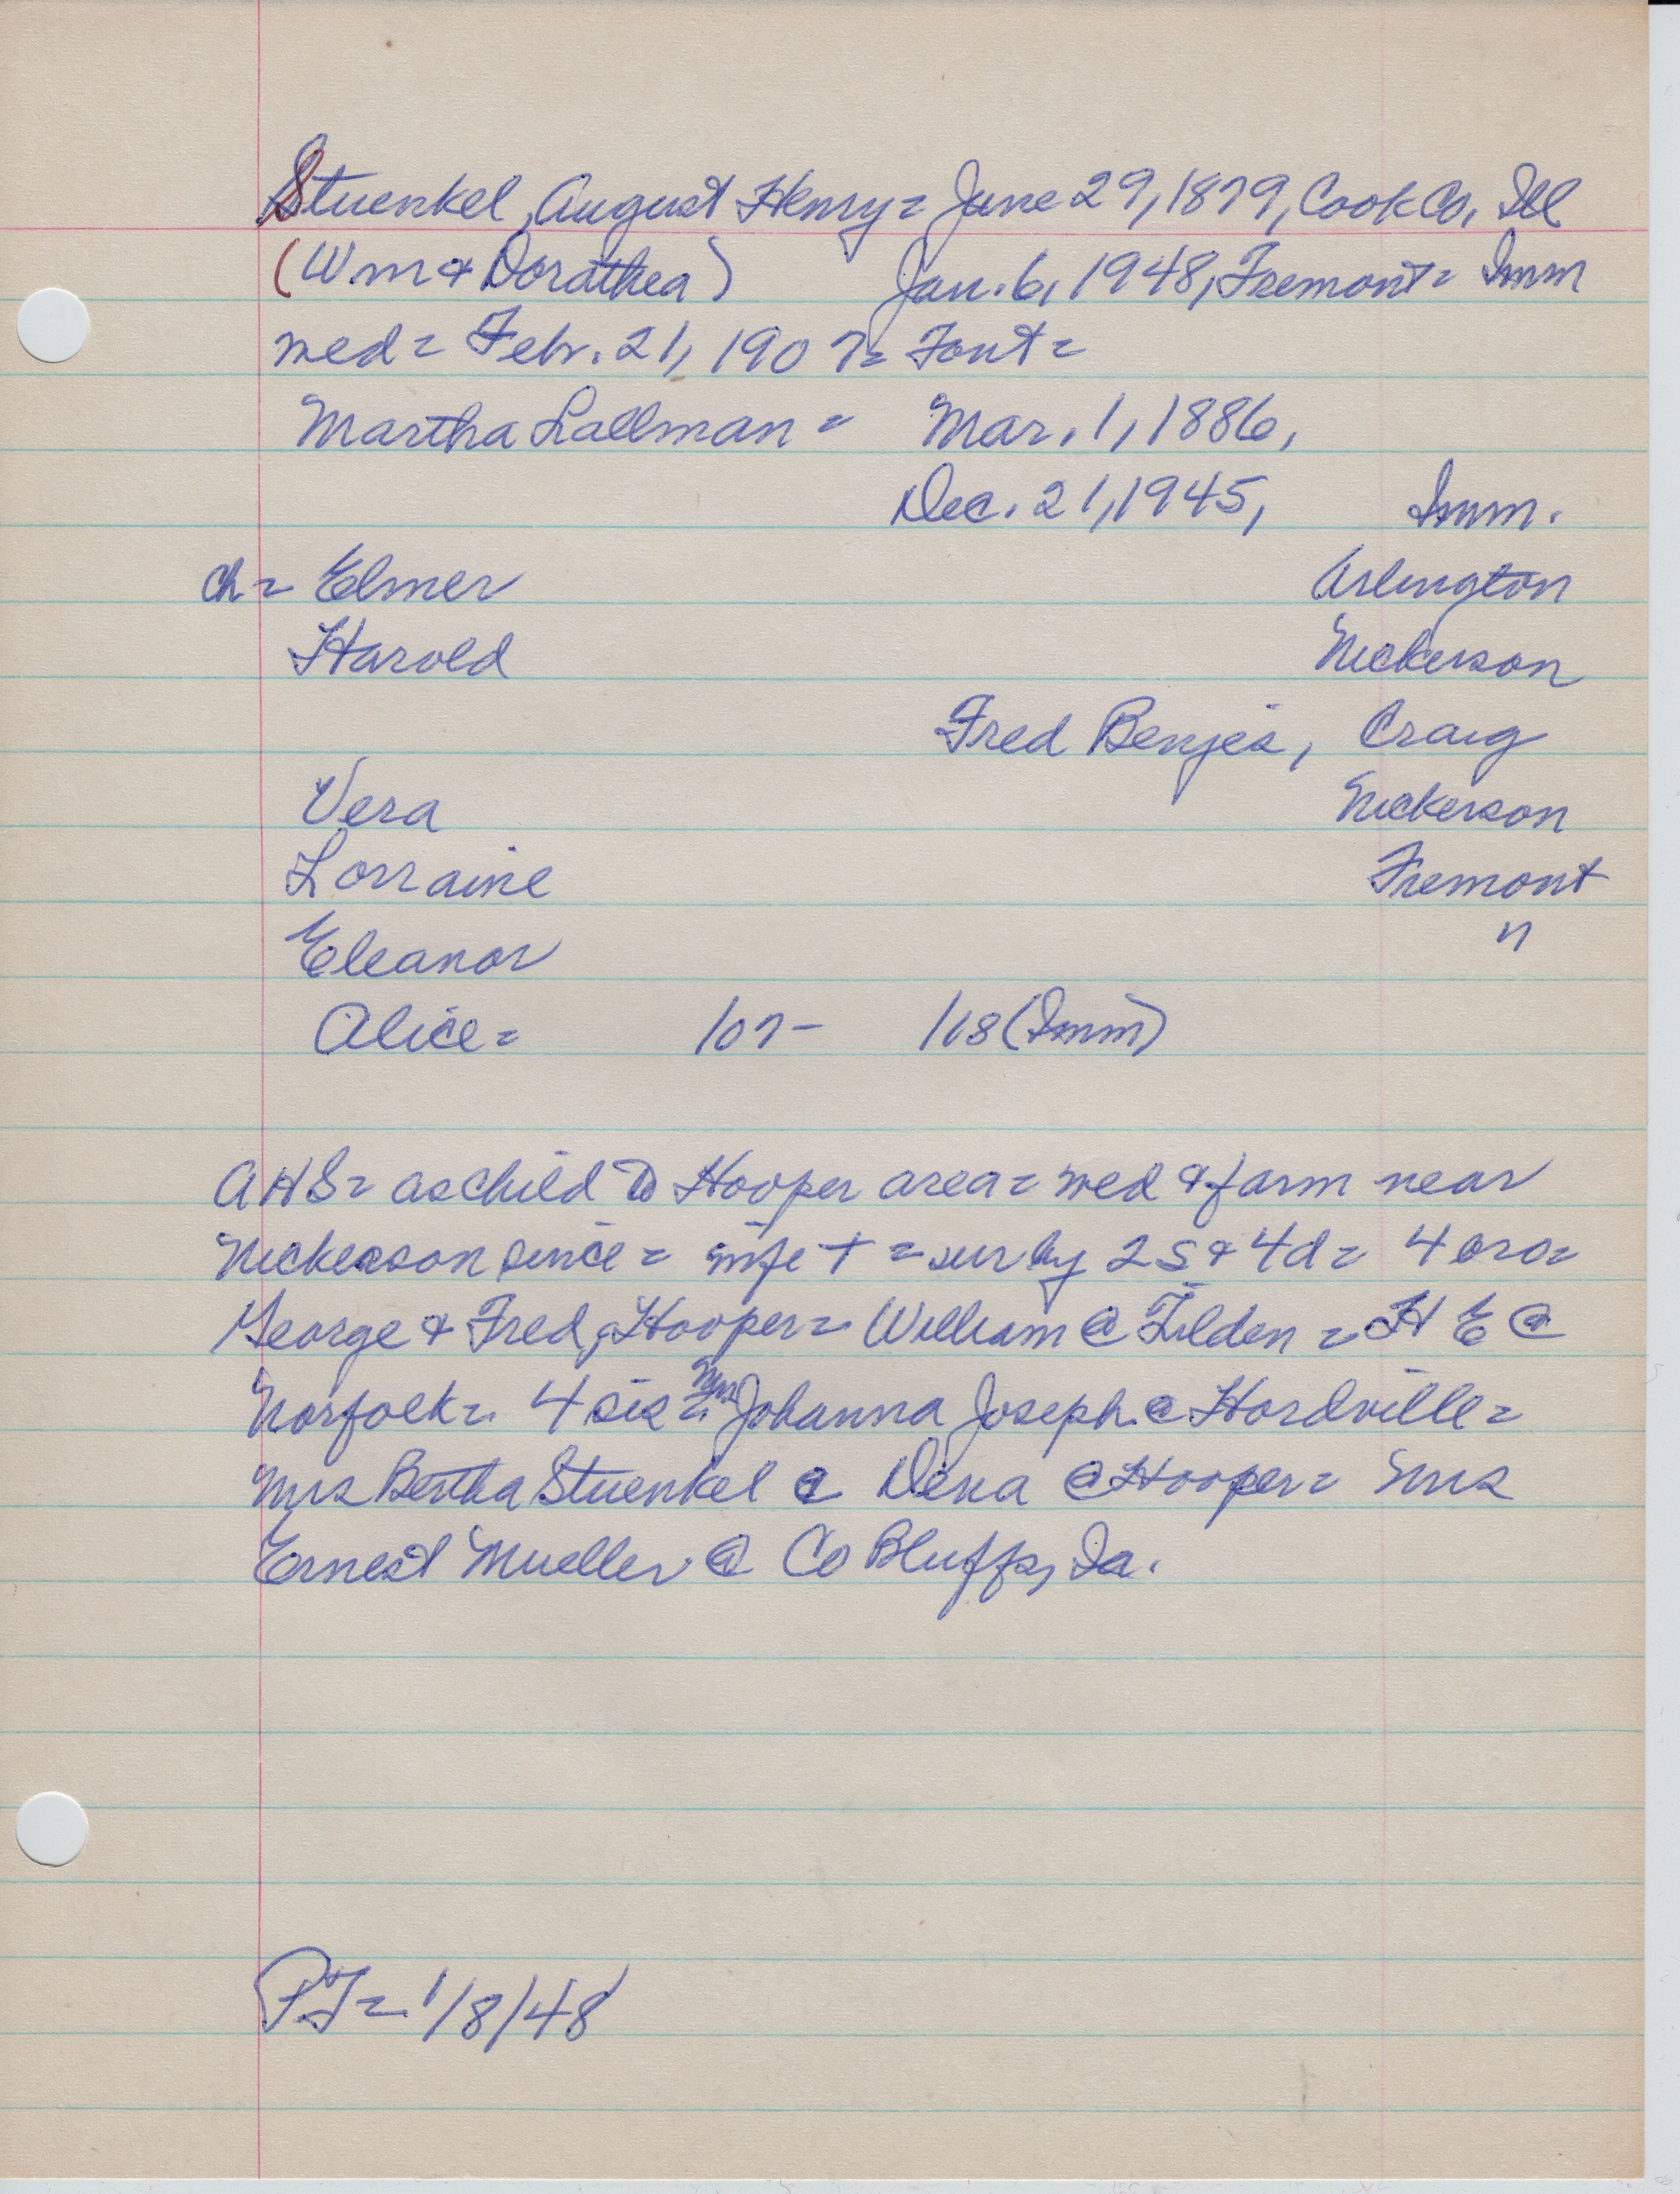 Stuenkel, August Henry = June 29, 1879, Cook Co, Ill
(Wm & Dorathea) Jan. 6, 1948, Fremont = Imm
wed = Febr. 21, 1907 = Font =
Martha Lallman = Mar. 1, 1886,
Dec. 21, 1945, Imm.
ch = Elmer Arlington
Harold Nickerson
Fred Benjes, Craig
Vera Nickerson
Lorraine Fremont
Eleanor "
Alice = 107 - 118 (Imm)
AHS = as child to Hooper area = wed & farm near
Nickerson since = wife + = sur by 2 S & 4 d = 4 bro =
George & Fred, Hooper = William @ Tilden = H E @
Norfolk = 4 sis = Mrs Johanna Joseph @ Hordville =
Mrs Bertha Stuenkel & Dena @ Hooper = Mrs
Ernest Mueller @ Co Bluffs, Ia.
PT = 1/8/48